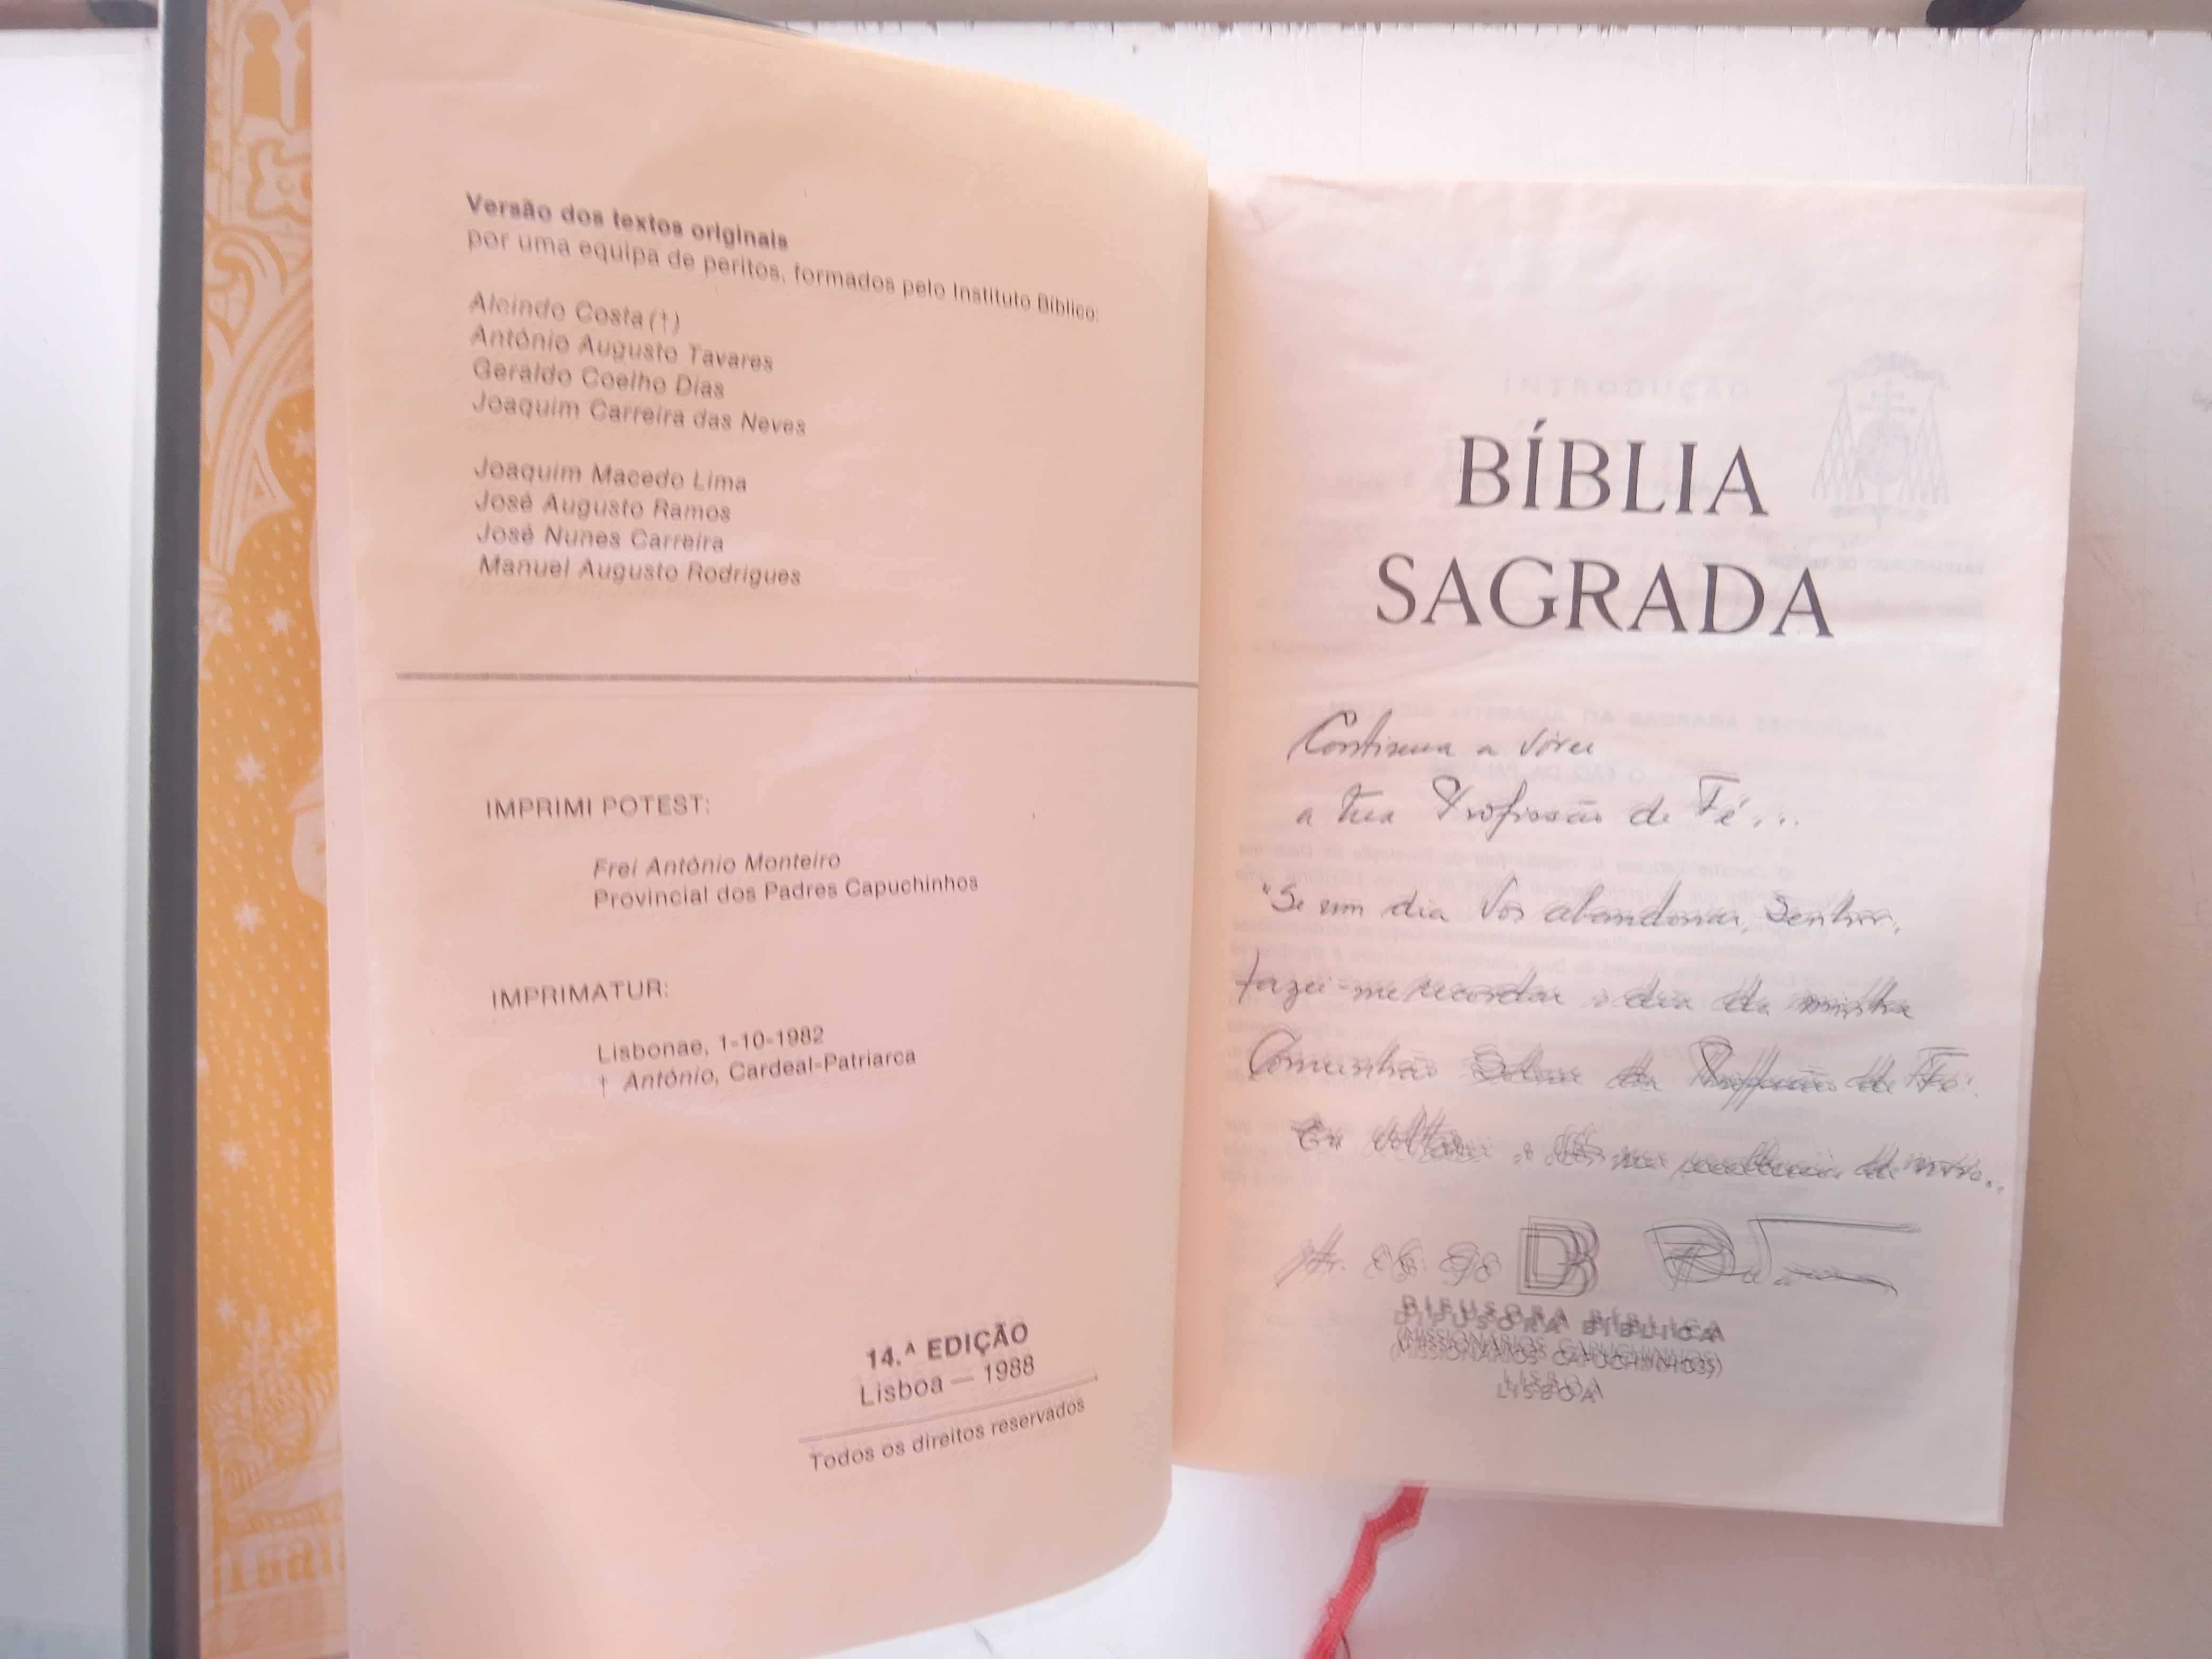 Versão dos textos originais
por uma equipa de peritos, formados pelo Instituto Bíblico:
Alcindo Costa (†)
António Augusto Tavares
Geraldo Coelho Dias
Joaquim Carreira das Neves
Joaquim Macedo Lima
José Augusto Ramos
José Nunes Carreira
Manuel Augusto Rodrigues
IMPRIMI POTEST:
Frei António Monteiro
Provincial dos Padres Capuchinhos
IMPRIMATUR:
Lisbonae, 1-10-1982
† António, Cardeal-Patriarca
14.ª EDIÇÃO
Lisboa — 1988
Todos os direitos reservados
BÍBLIA
SAGRADA
Continua a viver
a tua Profissão de Fé...
"Se um dia Vos abandonar, Senhor,
fazei-me recordar o dia da minha
Comunhão Solene da Profissão de Fé.
Eu
DIFUSORA BÍBLICA
(MISSIONÁRIOS CAPUCHINHOS)
LISBOA